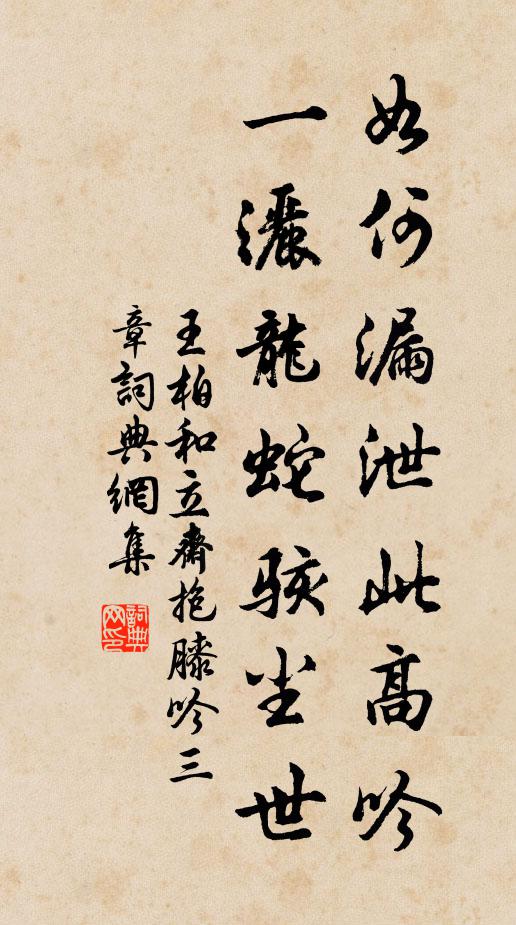 如何漏泄此高吟
一灑龍蛇駭尘世
王柏和立齋抱膝吟三
章詞典網集
詞典网印